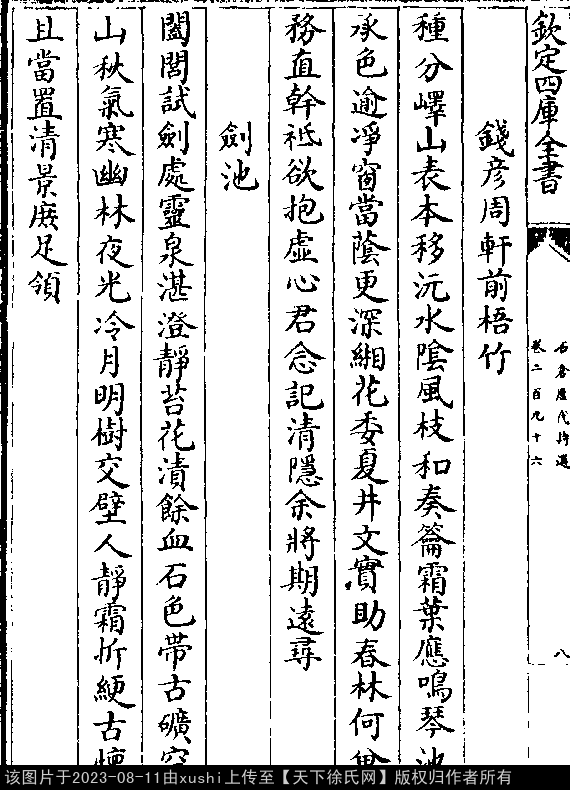 欽定四庫全書
石倉歷代詩選
卷二百九十六
八
錢彥周軒前梧竹
種分嶧山表本移沅水陰風枝和奏籥霜葉應鳴琴池
承色逾凈窗當蔭更深緗花委夏井文實助春林何
務直幹祗欲抱虛心君念記清隱余將期遠尋
劍池
闔閭試劍處靈泉湛澄靜苔花漬餘血石色帶古礦
山秋氣寒幽林夜光冷月明樹交壁人靜霜折綆古懷
且當置清景庶足領
该图片于2023-08-11由xushi上传至【天下徐氏网】版权归作者所有